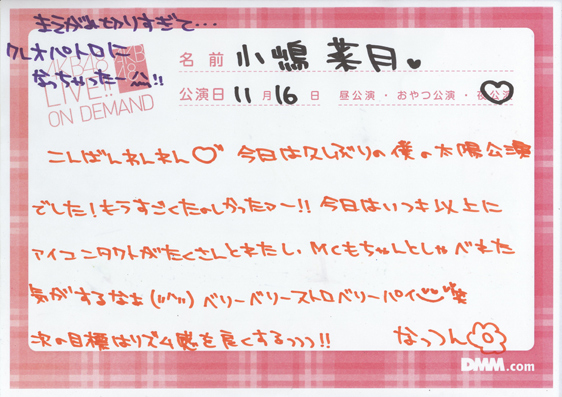 まえがみ切りすぎて・・・
クレオパトロに
なっちゃったー!!
AKB48
LIVE!!
ON DEMAND
AKB
48
名前 小嶋菜月♥
公演日 11月16日 昼公演・おやつ公演・夜公演
こんばんわんわん♡ 今日は久しぶりの僕の太陽公演
でした!もうすごくたのしかったぁ〜!! 今日はいつも以上に
アイコンタクトがたくさんとれたし、MCもちゃんとしゃべれた
気がするなぁ(("^")) ベリーベリーストロベリーパイ
次の目標はリズム感を良くするっっっ!! なっつん
DMM.com